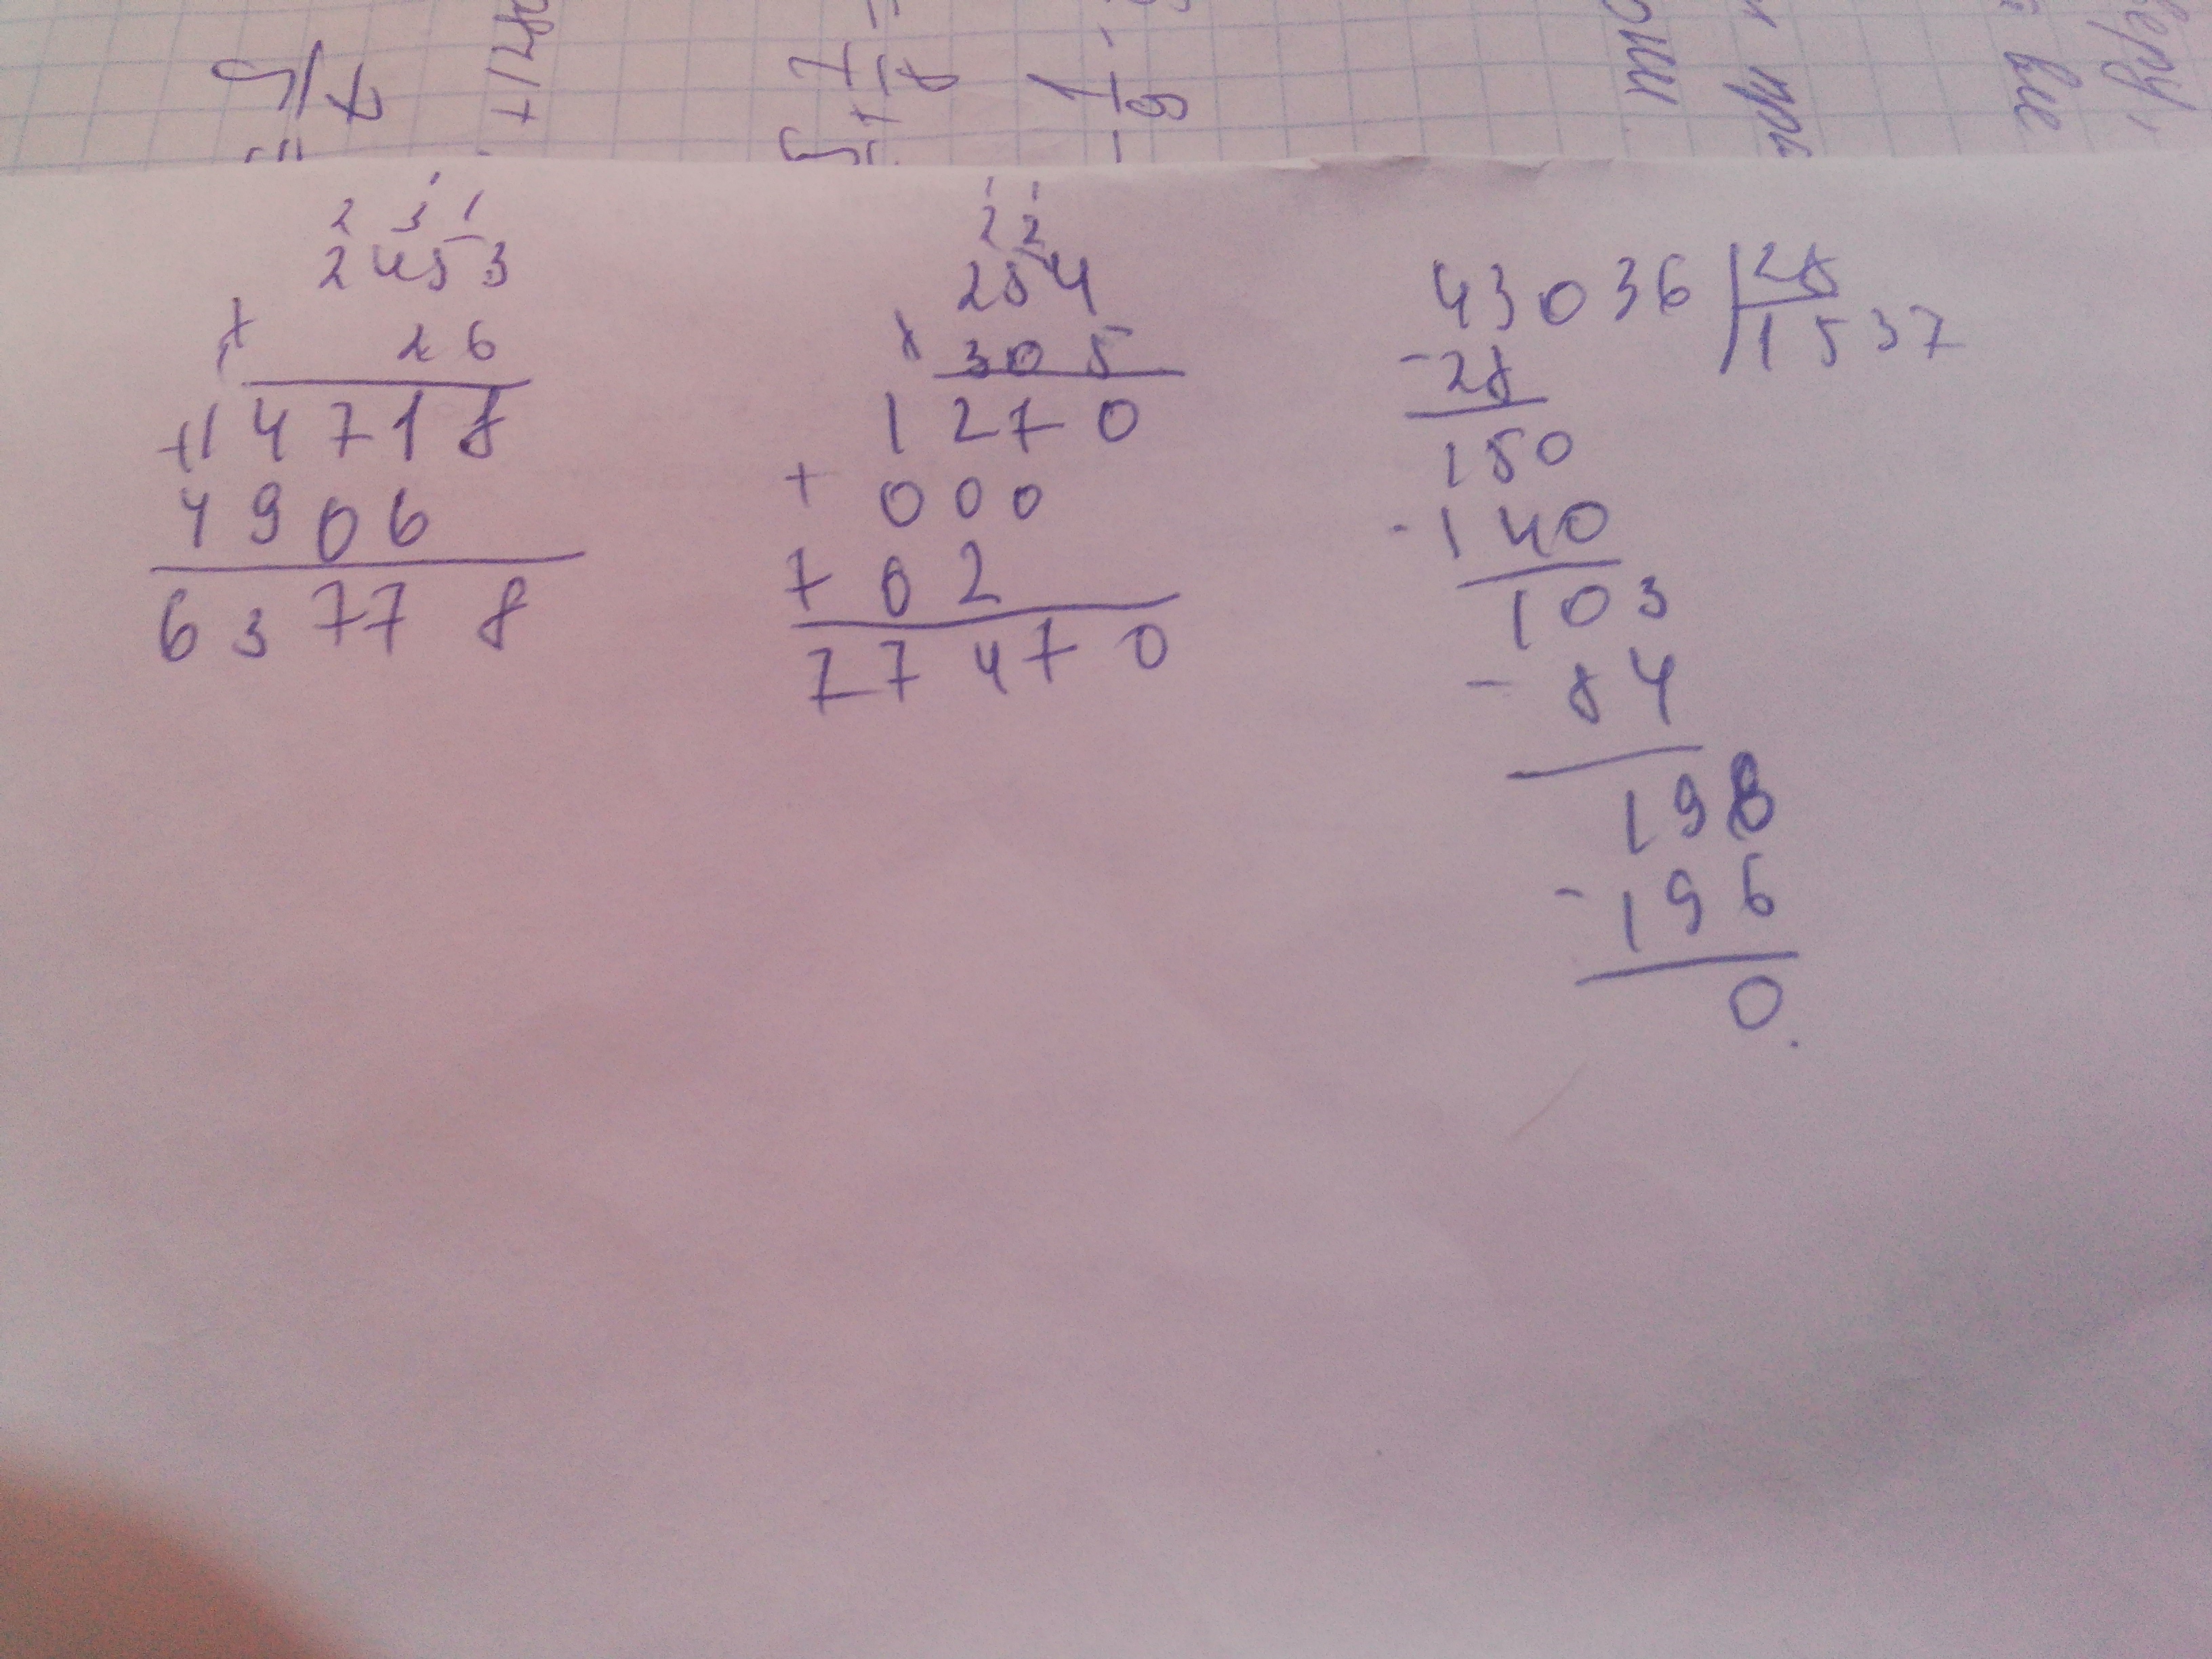 2 3 1
2453
× 26
+14718
4906
63778
1 1
2 2
254
× 305
1270
+ 000
762
77470
43036 | 28
1537
- 28
150
- 140
103
- 84
198
- 196
0.